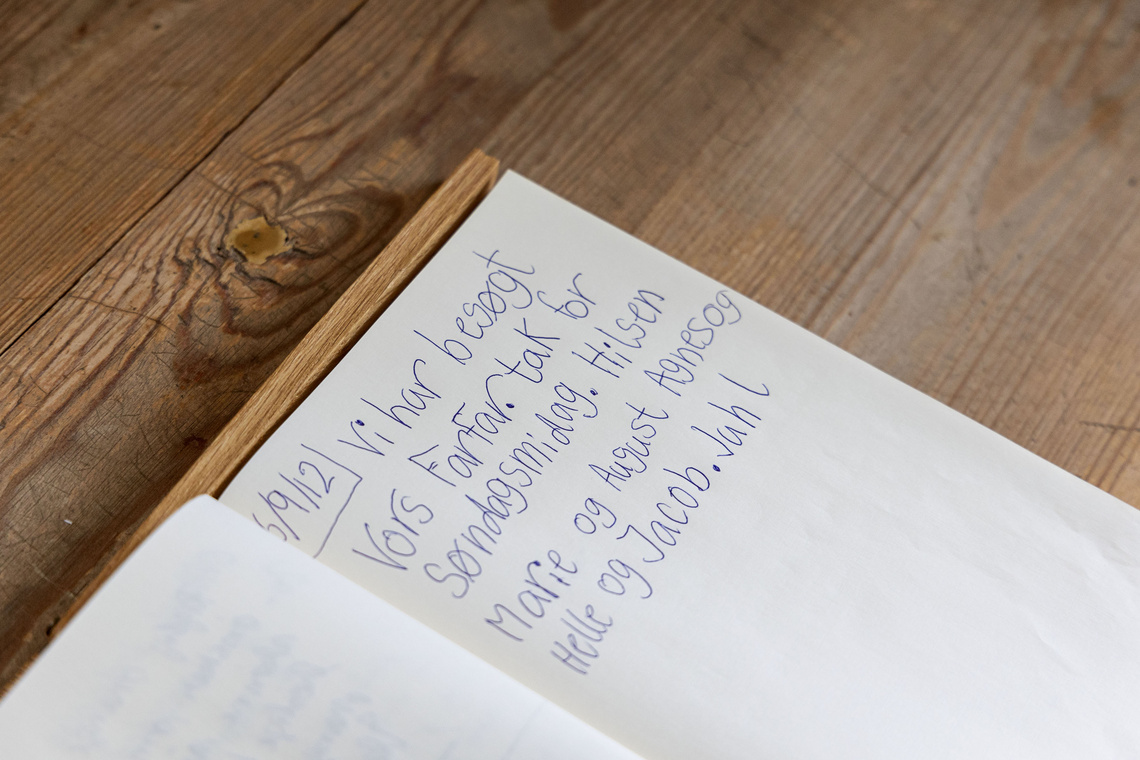 6/9/12 Vi har besøgt
Vors Farfar. tak for
Søndagsmidag. Hilsen
Marie og August Agnesog
Helle og Jacob. Jahl